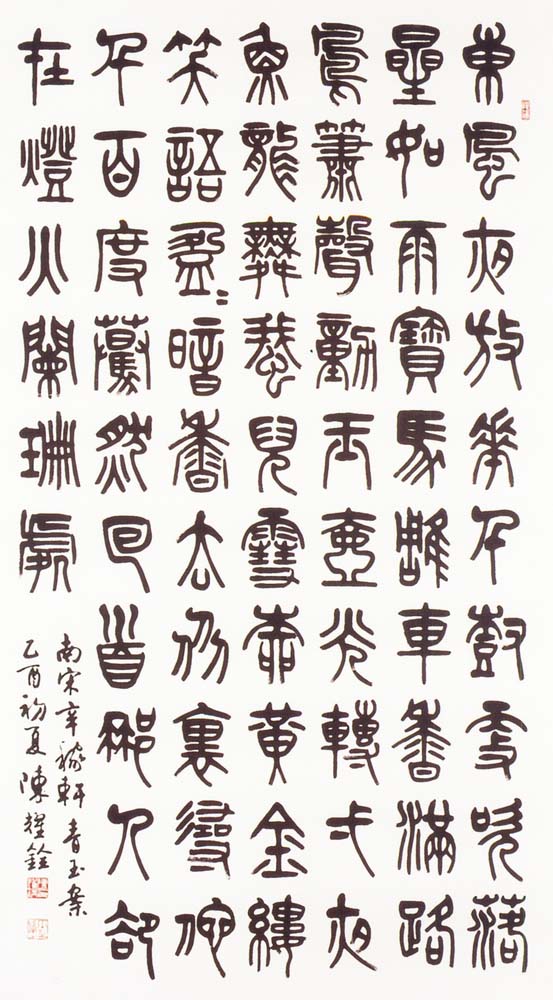 東風夜放花千尌更吹落
星如雨寶馬雕車香滿路
鳳簫聲動玉壺光轉弌夜
魚龍舞蛾兒雪柳黃金縷
笑語盈〻暗香去眾裏尋他
千百度驀然回首那人卻
在燈火闌珊處
南宋辛稼軒青玉案
乙酉初夏陳耀銓